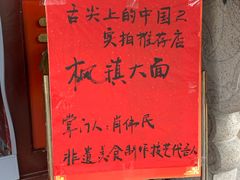 舌尖上的中国之
实拍推荐店
枫镇大面
掌门人：肖伟民
非遗美食制作技艺代言人